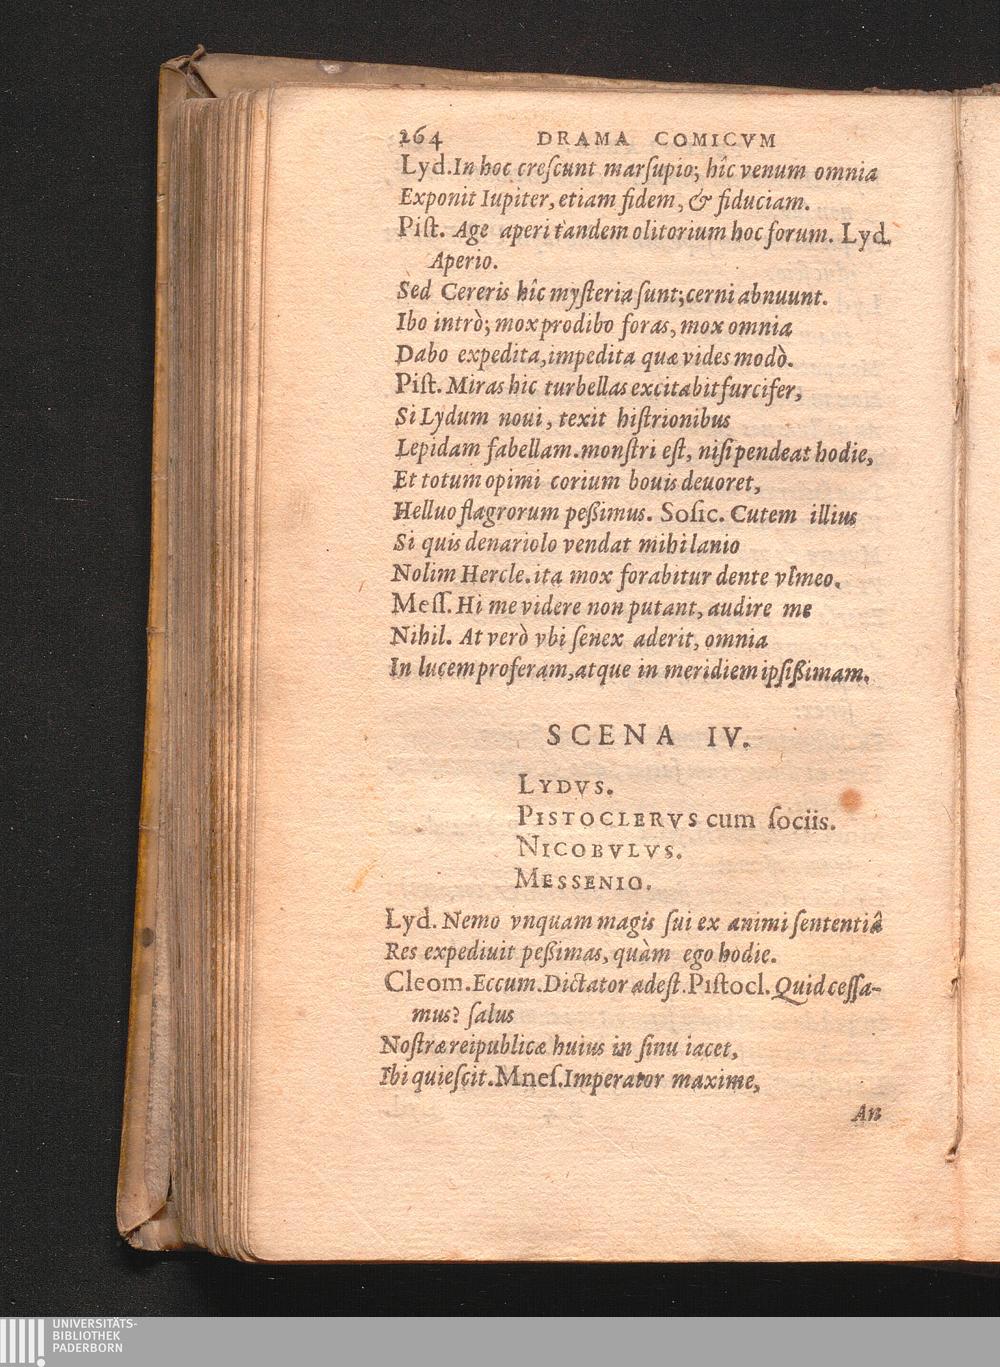 264 DRAMA COMICVM
Lyd. In hoc creſcunt marſupio; hîc venum omnia
Exponit Iupiter, etiam fidem, & fiduciam.
Piſt. Age aperi tandem olitorium hoc forum. Lyd.
Aperio.
Sed Cereris hîc myſteria ſunt; cerni abnuunt.
Ibo intrò; mox prodibo foras, mox omnia
Dabo expedita, impedita quæ vides modò.
Piſt. Miras hic turbellas excitabit furcifer,
Si Lydum noui, texit hiſtrionibus
Lepidam fabellam. monſtri eſt, niſi pendeat hodie,
Et totum opimi corium bouis deuoret,
Helluo flagrorum peßimus. Soſic. Cutem illius
Si quis denariolo vendat mihi lanio
Nolim Hercle. ita mox forabitur dente vlmeo.
Meſſ. Hi me videre non putant, audire me
Nihil. At verò vbi ſenex aderit, omnia
In lucem proferam, atque in meridiem ipſißimam.
SCENA IV.
LYDVS.
PISTOCLERVS cum ſociis.
NICOBVLVS.
MESSENIO.
Lyd. Nemo vnquam magis ſui ex animi ſententiâ
Res expediuit peßimas, quàm ego hodie.
Cleom. Eccum. Dictator adeſt. Piſtocl. Quid ceſſa-
mus? ſalus
Noſtræ reipublicæ huius in ſinu iacet,
Ibi quieſcit. Mneſ. Imperator maxime,
An
UNIVERSITÄTS-
BIBLIOTHEK
PADERBORN